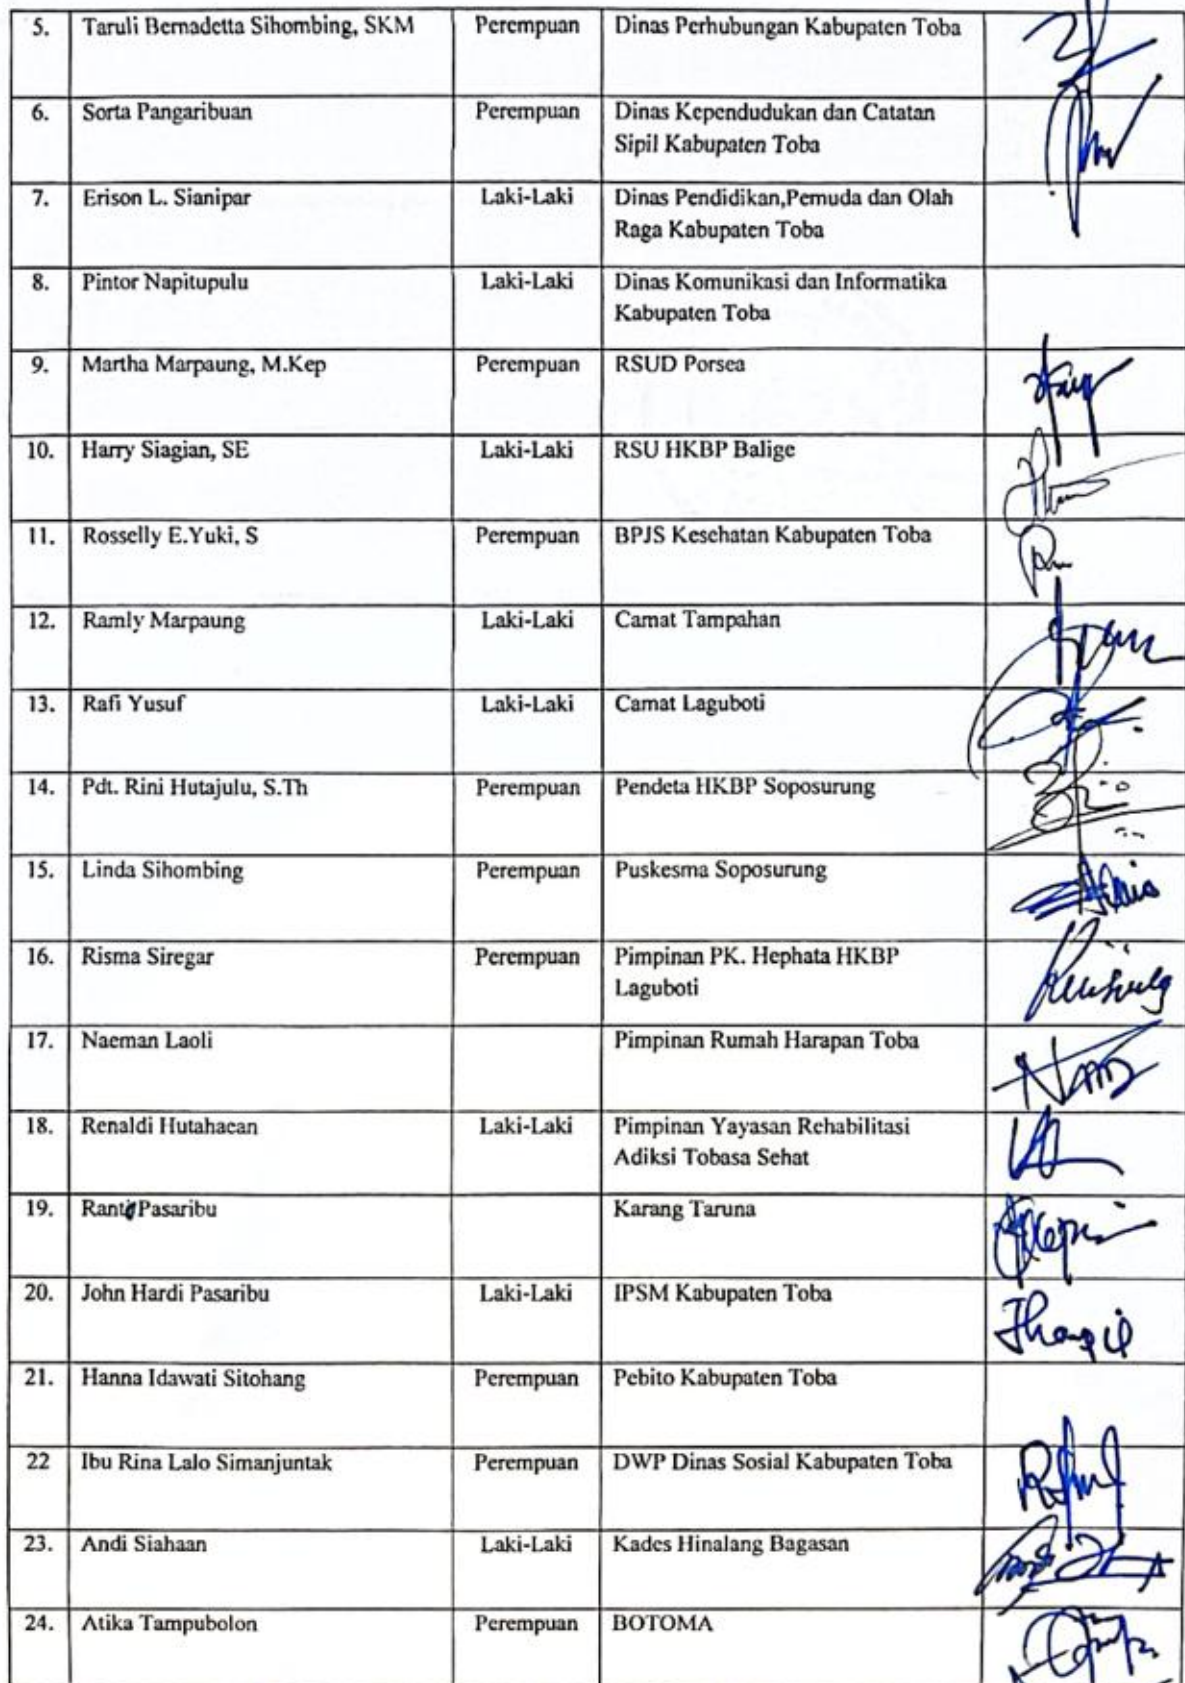 5. Taruli Bernadetta Sihombing, SKM Perempuan Dinas Perhubungan Kabupaten Toba
6. Sorta Pangaribuan Perempuan Dinas Kependudukan dan Catatan
Sipil Kabupaten Toba
7. Erison L. Sianipar Laki-Laki Dinas Pendidikan,Pemuda dan Olah
Raga Kabupaten Toba
8. Pintor Napitupulu Laki-Laki Dinas Komunikasi dan Informatika
Kabupaten Toba
9. Martha Marpaung, M.Kep Perempuan RSUD Porsea
10. Harry Siagian, SE Laki-Laki RSU HKBP Balige
11. Rosselly E.Yuki, S Perempuan BPJS Kesehatan Kabupaten Toba
12. Ramly Marpaung Laki-Laki Camat Tampahan
13. Rafi Yusuf Laki-Laki Camat Laguboti
14. Pdt. Rini Hutajulu, S.Th Perempuan Pendeta HKBP Soposurung
15. Linda Sihombing Perempuan Puskesma Soposurung
16. Risma Siregar Perempuan Pimpinan PK. Hephata HKBP
Laguboti
17. Naeman Laoli Pimpinan Rumah Harapan Toba
18. Renaldi Hutahaean Laki-Laki Pimpinan Yayasan Rehabilitasi
Adiksi Tobasa Sehat
19. Pasaribu Karang Taruna
20. John Hardi Pasaribu Laki-Laki IPSM Kabupaten Toba
21. Hanna Idawati Sitohang Perempuan Pebito Kabupaten Toba
22 Ibu Rina Lalo Simanjuntak Perempuan DWP Dinas Sosial Kabupaten Toba
23. Andi Siahaan Laki-Laki Kades Hinalang Bagasan
24. Atika Tampubolon Perempuan BOTOMA